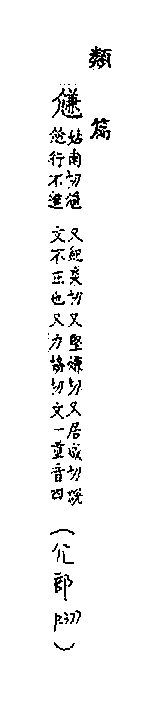 類篇
尲
姑南切尲
尬行不進
又紀炎切又堅嫌切又居咸切說
文不正也又力協切文一重音四
(尣部 p.377)